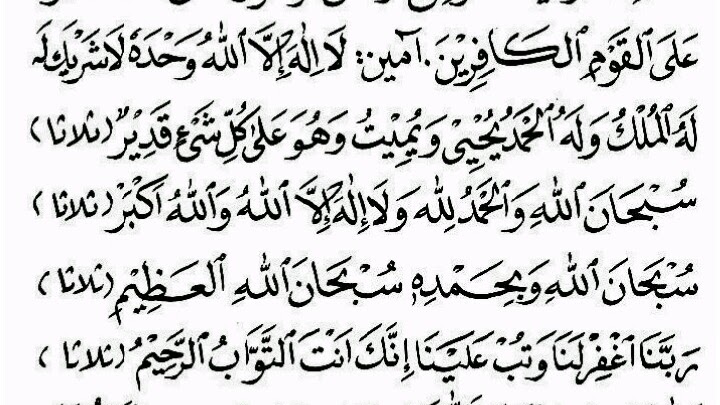 عَلَى ٱلْقَوْمِ ٱلْكَافِرِيْنَ. آمين: لَا اِلٰهَ إِلَّا ٱللهُ وَحْدَهُ لَا شَرِيْكَ لَهُ
لَهُ ٱلْمُلْكُ وَلَهُ ٱلْحَمْدُ يُحْيِيْ وَيُمِيْتُ وَهُوَ عَلَى كُلِّ شَيْءٍ قَدِيْرٌ (ثلاثا)
سُبْحَانَ ٱللهِ وَٱلْحَمْدُ لِلّٰهِ وَلَا إِلٰهَ إِلَّا ٱللهُ وَٱللهُ أَكْبَرْ (ثلاثا)
سُبْحَانَ ٱللهِ وَبِحَمْدِهِ سُبْحَانَ ٱللهِ ٱلْعَظِيْمِ (ثلاثا)
رَبَّنَا ٱغْفِرْلَنَا وَتُبْ عَلَيْنَا إِنَّكَ اَنْتَ ٱلتَّوَّابُ ٱلرَّحِيْمُ (ثلاثا)